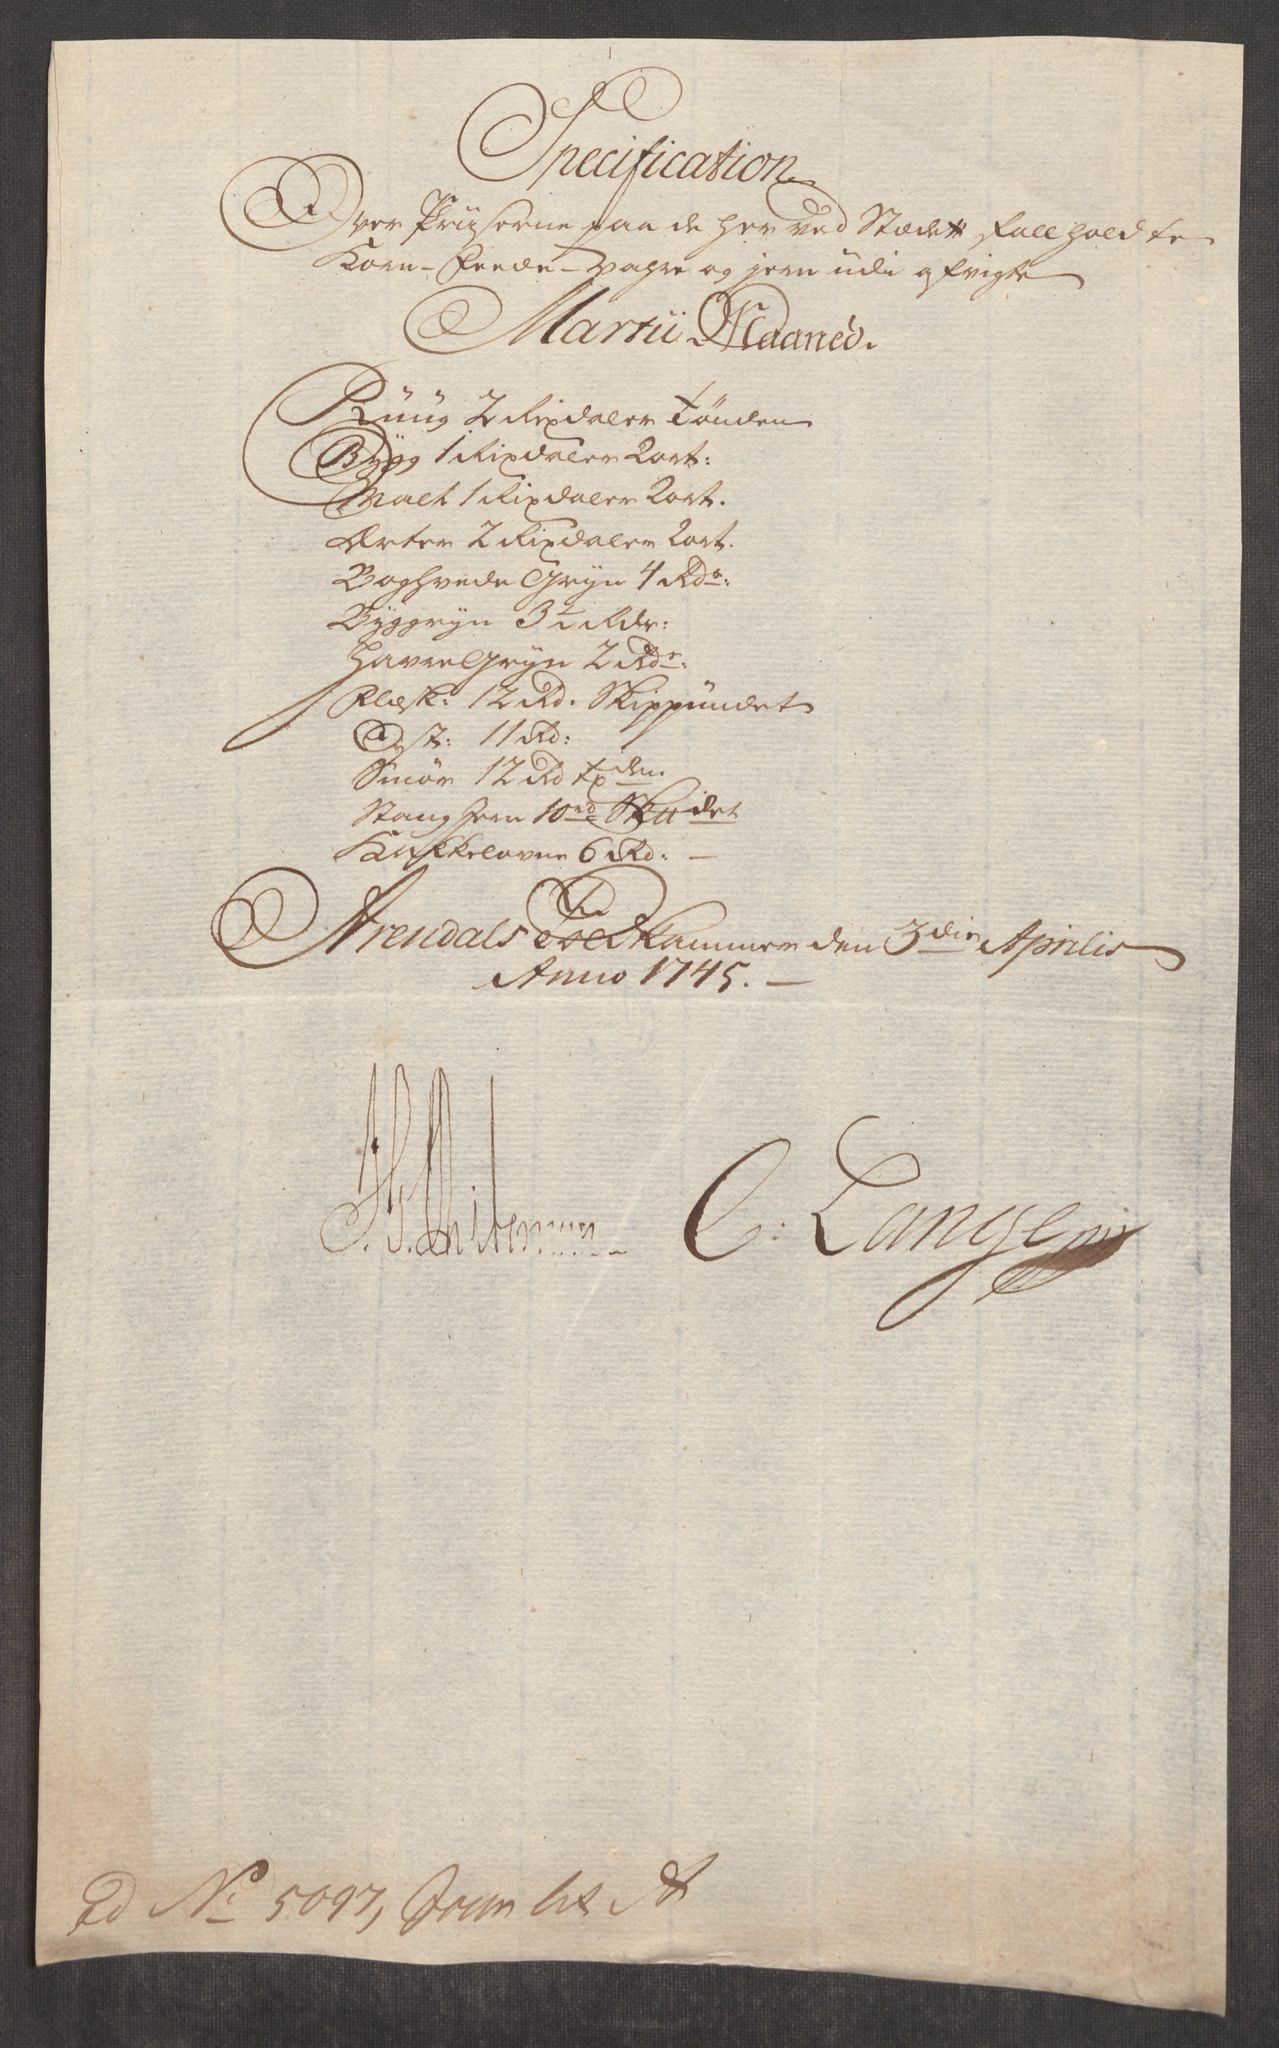 Specification
Over Prüserne paa de her ved Stædet fallholdte
Korn- Feede- Vahre og jern udi afvigte
Martii Maaned.
Rüüg 2 Rixdaler Tønden
Bÿgg 1 Rixdaler 2 ort:
Malt 1 Rixdaler 2 ort.
Erter 2 Rixdaler 2 ort.
Boghvede Grÿn 4 Rdr:
Bÿggrÿn 3½ Rdr:
Havre Grÿn 2 Rdr:
Flæsk: 12 Rd. Skippündet
Ost: 11 Rd:
Smør 12 Rd tøden
Stang Jern 10 rd Sk℔det
Kakkelovne 6 Rd: —
Arendals Toldkammer den 3die Aprilis
Anno 1745. —
C: Lange
Ad No 5097, Journ lit A